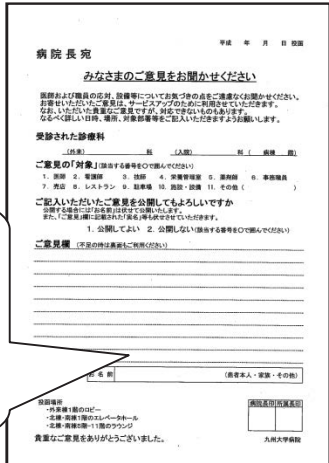 平成　　年　　月　　日 投函
病院長宛
みなさまのご意見をお聞かせください
医師および職員の応対、設備等についてお気づきの点をご遠慮なくお聞かせください。
お寄せいただいたご意見は、サービスアップのために利用させていただきます。
なお、いただいた貴重なご意見ですが、対応できないものもあります。
なるべく詳しい日時、場所、対象部署等をご記入いただきますようお願いします。
受診された診療科
(外来)　　　　科　　(入院)　　　　科 (　病棟　階)
ご意見の「対象」(該当する番号を○で囲んでください)
1. 医師 2. 看護師 3. 技師 4. 栄養管理室 5. 薬剤師 6. 事務職員
7. 売店 8. レストラン 9. 駐車場 10. 施設・設備 11. その他 (　　　　)
ご記入いただいたご意見を公開してもよろしいですか
公開する場合には「お名前」は伏せて公開いたします。
また、「ご意見」欄に記載された「実名」等も伏せさせていただきます。
1. 公開してよい 2. 公開しない (該当する番号を○で囲んでください)
ご意見欄 (不足の時は裏面もご利用ください)
お名前　　　　(患者本人・家族・その他)
投函場所
・外来棟1階のロビー
・北棟・南棟1階のエレベータホール
・北棟・南棟5階~11階のラウンジ
病院長印 所属長印
貴重なご意見をありがとうございました。
九州大学病院